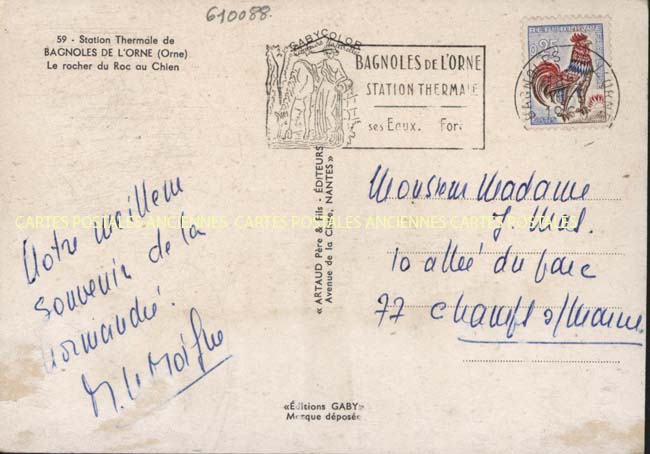 610088.
59 - Station Thermale de
BAGNOLES DE L'ORNE (Orne)
Le rocher du Roc au Chien
GABYCOLOR
BAGNOLES DE L'ORNE
STATION THERMALE
ses Eaux. For
0,25
« ARTAUD Père & Fils - ÉDITEURS
Avenue de la Close, NANTES »
CARTES POSTALES ANCIENNES CARTES POSTALES ANCIENNES CARTES POSTALES
Notre meilleur
souvenir de la
Normandie.
Monsieur Madame
10 allée du parc
77 Champs s/marne
«Éditions GABY»
Marque déposée